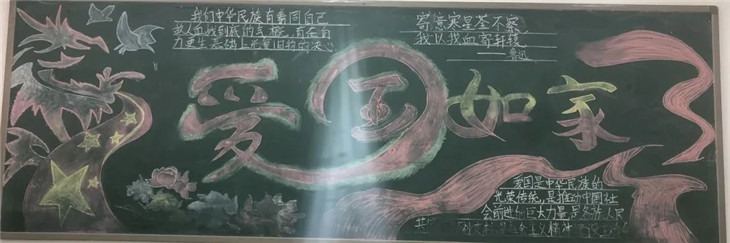 我们中华民族有着同自己
敌人血战到底的气概，有在自
力更生基础上光复旧物的决心
寄意寒星荃不察
我以我血荐轩辕
——鲁迅
爱国如家
爱国是中华民族的
光荣传统，是推动中国社
会前进的巨大力量是各族人民
共